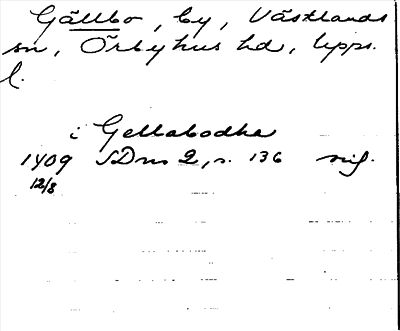 Gällbo, by, Västlands
sn, Örbyhus hd, Upps.
l.
i Gellabodha
1409 SDns 2, s. 136 sig.
12/8